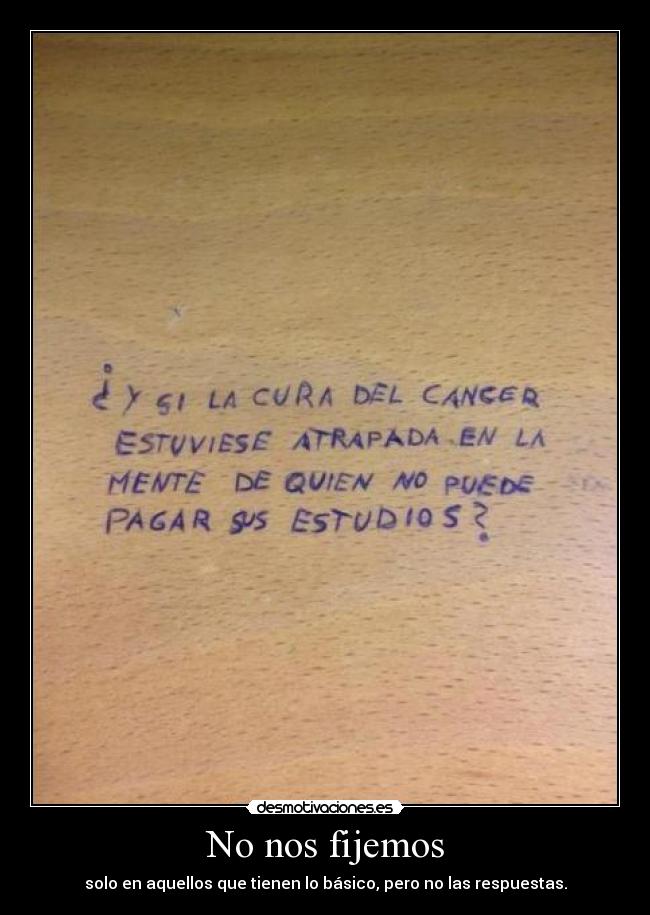 ¿Y SI LA CURA DEL CANCER
ESTUVIESE ATRAPADA EN LA
MENTE DE QUIEN NO PUEDE
PAGAR SUS ESTUDIOS?
desmotivaciones.es
No nos fijemos
solo en aquellos que tienen lo básico, pero no las respuestas.